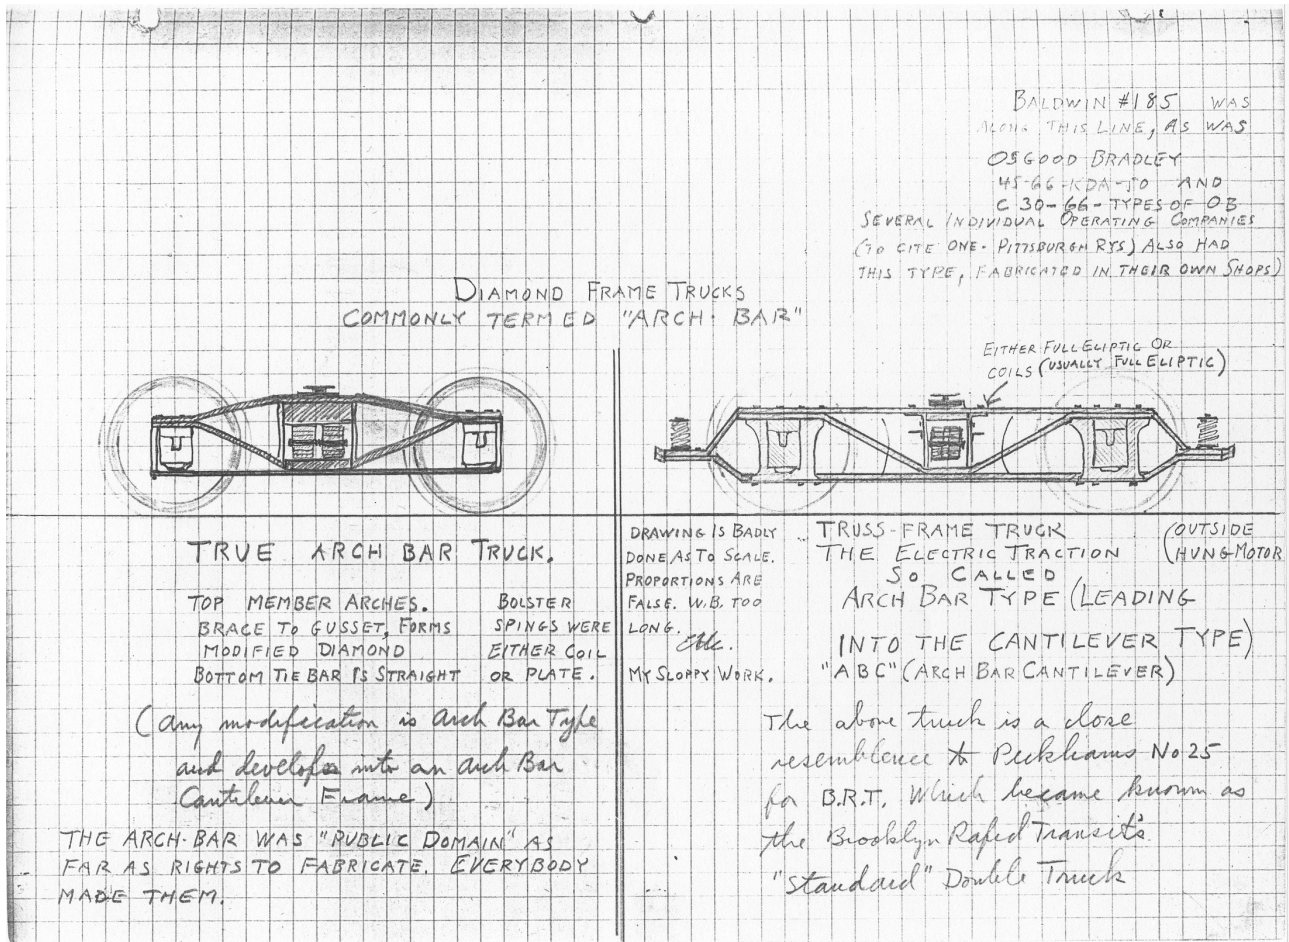 BALDWIN #185 WAS
ALONG THIS LINE, AS WAS
OSGOOD BRADLEY
45-66-KDA-JO AND
C 30-66-TYPES OF OB
SEVERAL INDIVIDUAL OPERATING COMPANIES
(TO CITE ONE- PITTSBURGH RYS) ALSO HAD
THIS TYPE, FABRICATED IN THEIR OWN SHOPS)
DIAMOND FRAME TRUCKS
COMMONLY TERMED "ARCH-BAR"
EITHER FULL ELIPTIC OR
COILS (USUALLY FULL ELIPTIC)
TRUE ARCH BAR TRUCK.
TOP MEMBER ARCHES.
BRACE TO GUSSET, FORMS
MODIFIED DIAMOND
BOTTOM TIE BAR IS STRAIGHT
BOLSTER
SPINGS WERE
EITHER COIL
OR PLATE.
(any modification is Arch Bar Type
and develops into an Arch Bar
Cantilever Frame)
THE ARCH-BAR WAS "PUBLIC DOMAIN" AS
FAR AS RIGHTS TO FABRICATE. EVERYBODY
MADE THEM.
DRAWING IS BADLY
DONE AS TO SCALE.
PROPORTIONS ARE
FALSE. W.B. TOO
LONG.
MY SLOPPY WORK.
TRUSS-FRAME TRUCK
(OUTSIDE
HUNG-MOTOR
THE ELECTRIC TRACTION
SO CALLED
ARCH BAR TYPE (LEADING
INTO THE CANTILEVER TYPE)
"ABC" (ARCH BAR CANTILEVER)
The above truck is a close
resemblence to Peckhams No 25
for B.R.T. Which became known as
the Brooklyn Rapid Transit's
"Standard" Double Truck